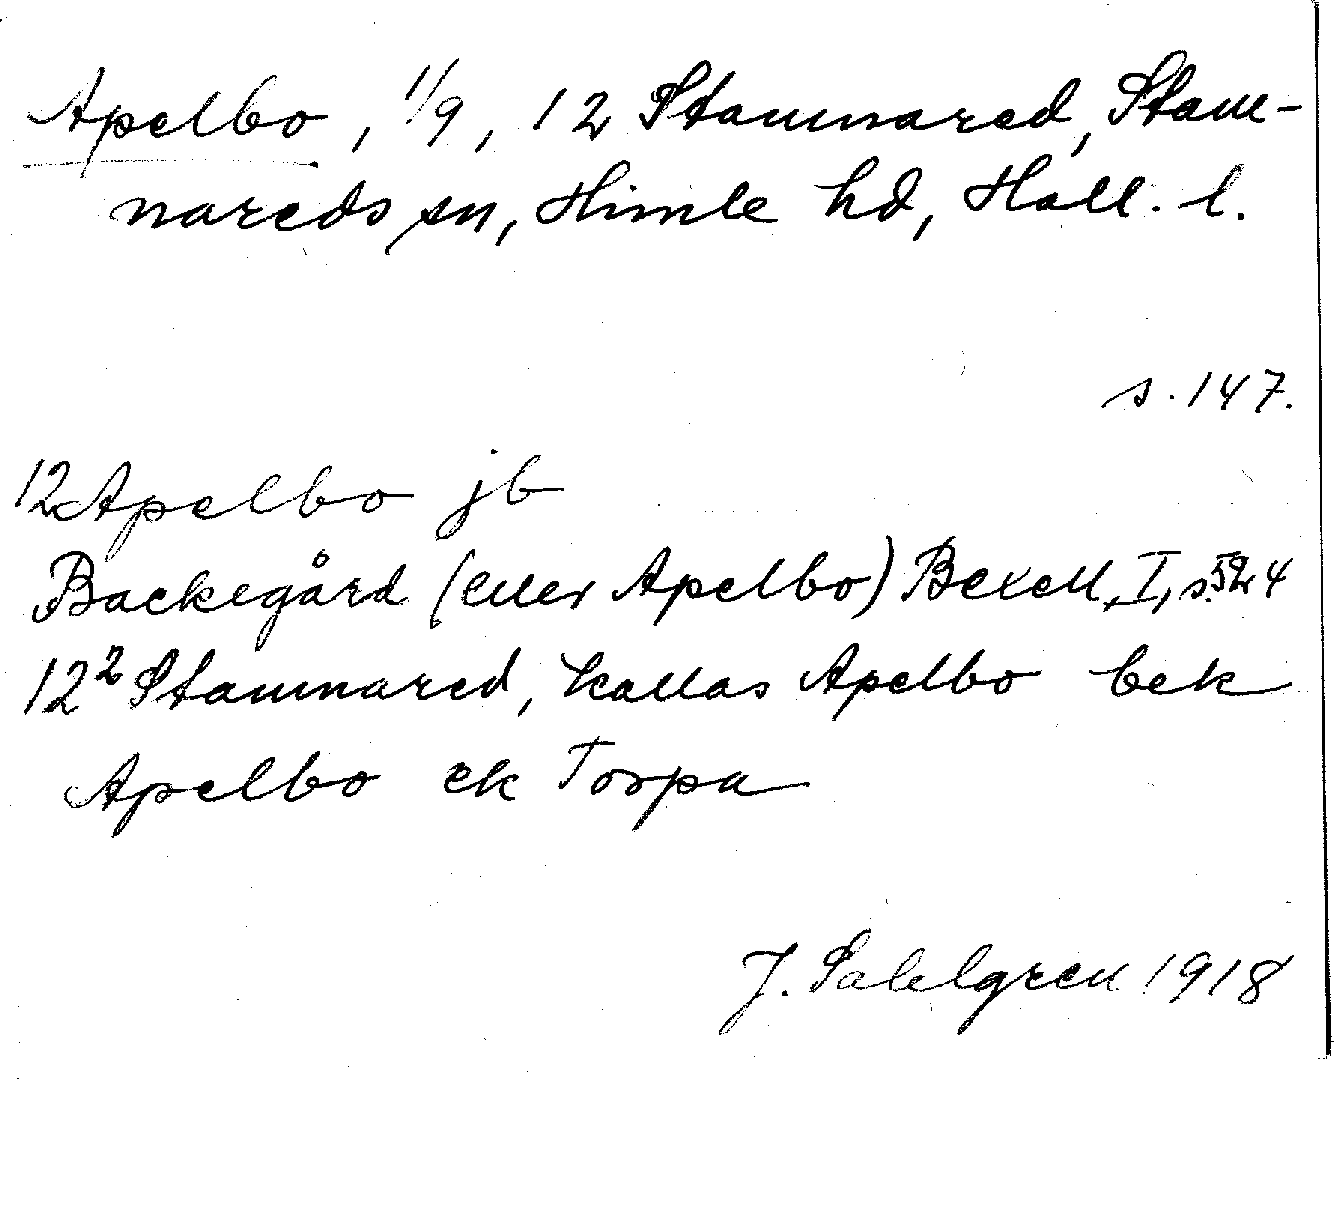 Apelbo, 1/9, 12 Stamnared, Stam-
nareds sn, Himle hd, Hall. l.
s. 147.
12 Apelbo jb
Backegård (eller Apelbo) Bexell, I, s. 524
12² Stamnared, kallas Apelbo bek
Apelbo ek Torpa
J. Sahlgren 1918